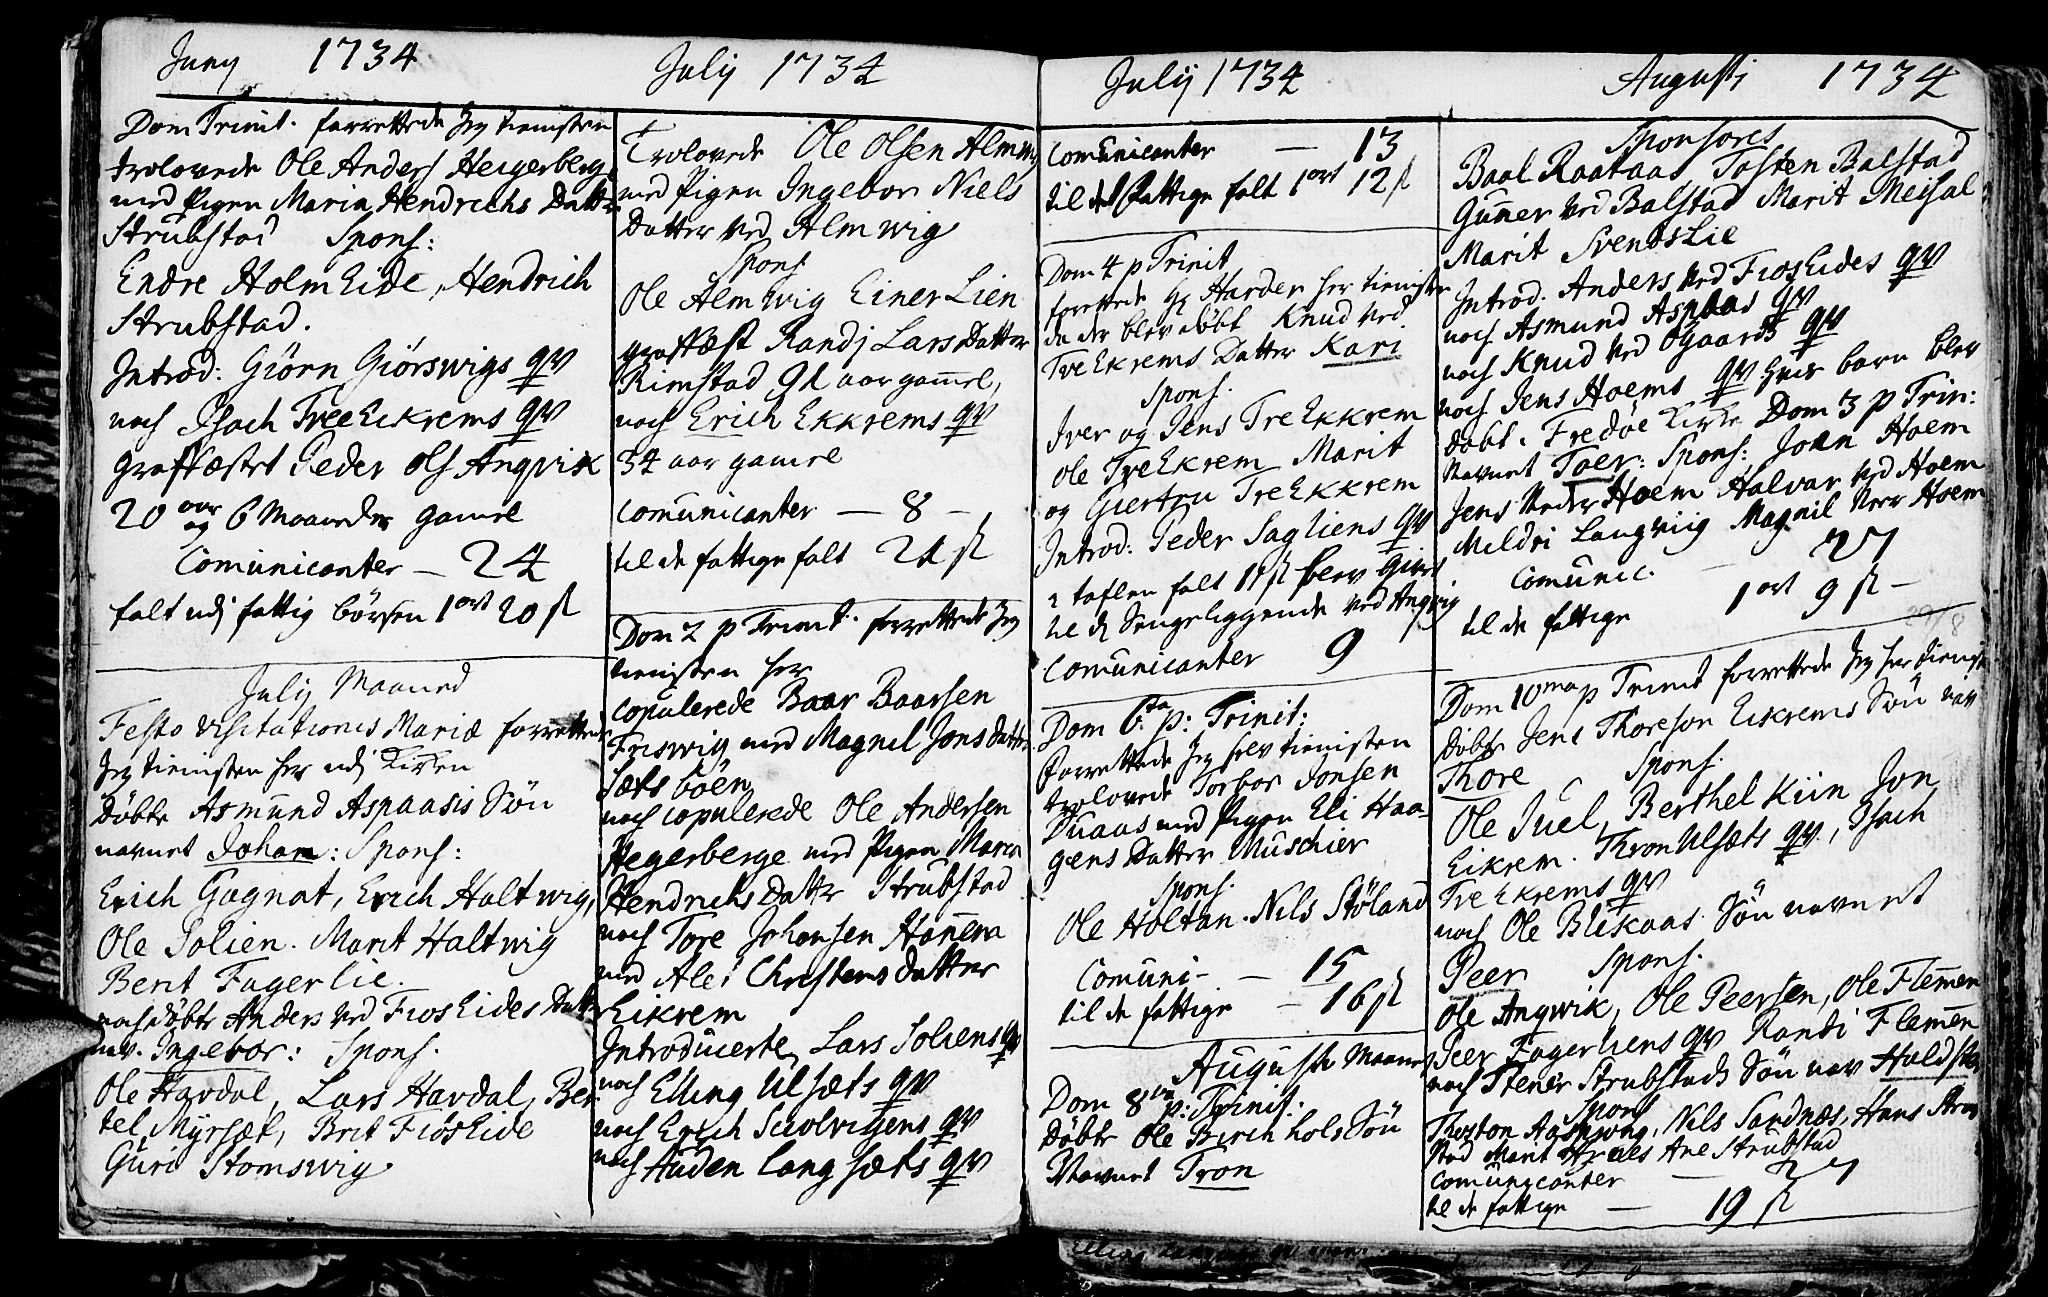 Juny 1734
Dom Trinit. forrettede Jeg tienisten
trolovede Ole Anders Hergerberg
med Pigen Maria Hendrichs Datter
Strubstad Spons:
Endre Holm Eide, Hendrich
Strubstad.
Introd: Giörn Giörswigs qv
noch Isach Tree Eikrems qv
graffæstet Peder Ols Angvik
20 aar og 6 Maaneder gamel
Comunicanter — 24
falt udj fattig börsen 1 ort 20 ſl
July Maaned
Festo Visitationis Mariæ forrettede
Jeg tienisten her udj Kirken
döbte Asmund Aspaasis Sön
navnet Johan: Spons:
Erich Gagnat, Erich Haltwig,
Ole Solien. Marit Haltwig
Berit Fagerlie.
noch döbte Anders ved FiosEides Datter
nav. Ingebor: Spons.
Ole Havdal, Lars Havdal, Ber
tel Myrsæt, Brit Fiös Eide
Guri Stomswig
July 1734
Trolovede Ole Olsen Almwig
med Pigen Ingebor Niels
Datter ved Almwig
Spons
Ole Almwig Einer Lien
graffæst Randj Lars Datter
Rimstad 91 aar gamel,
noch Erich Ekkrems qv
34 aar gamel
Comunicanter — 8 —
til de fattige falt 21 ſl
Dom 2 p Trinit. forrettede Jeg
tienisten her
Copulerede Baar Baarsen
Friswig med Magnil Jons datter
Sætsböen
noch copulerede Ole Andersen
Hegerberge med Pigen Maren
Hendrichs datter Strubstad
noch Tore Johansen Hanem
med Ale Christens datter
Eikrem
Introducerte Lars Soliens qv
noch Elling Ulsæts qv
noch Erich Suolvigens qv
noch Auden Langsæts qv
July 1734
Comunicanter — 13
til de Fattige falt 1 ort 12 ſl
Dom 4 p Trinit
forettede Hr Harder her tienisten
da der blev döbt Knud ved
Tre Ekrems Datter Kari
Spons.
Iver og Jens Tre Ekkrem
Ole Tre Ekrem Marit
og Giertru Tre Ekkrem
Introd: Peder Sagliens qv
i taflen falt 11 ſl blev Givet
til d Sengeliggende ved Angvig
Comunicanter 9
Dom 6ta p: Trinit:
forrettede Jeg selv tienisten
trolovede Torbor Jonsen
Duaas med Pigen Eli Haa-
gens Datter Muschier
Spons.
Ole Holtan. Nils Stöland
Comuni- — 15
til de fattige — 16 ſl
Augusti Maaned
Dom 8va p: Trinit:
döbte Ole Birch hols Sön
Navnet Tron
Augusti 1734
Sponsores
Baal Raataas Tosten Balstad
Guner ved Balstad Marit Meisal
Marit Svendslie
Introd. Anders ved Fios Eides qv
noch Asmund Aspaas qv
noch Knud ved Ögaards qv
noch Jens Hoems qv hvis barn blev
döbt i Fredöe Kirke Dom 3 p Trin:
navnet Toer: Spons: Joen Hoem
Jens Neder Hoem Halvar ved Hoem
Mildri Langwiig Magnil Neer Hoem
Comunic. — 27
til de fattige 1 ort 9 ſl —
29/8
Dom 10ma p Trinit forrettede Jeg her tienist
döbte Jens Thoreson Eikrems Sön nav
Thore Spons.
Ole Juel, Berthel Kiin Jon
Eikrem. Thron Ulsæts qv, Isach
Tre Ekrems qv
noch Ole Blikaas Sön navnet
Peer Spons.
Ole Angwik, Ole Peersen, Ole Flemen
Peer Fagerliens qv Randi Flemen
noch Stener Strubstads Sön nav Holdsten
Spons
Thoston Angwig, Nils Sandnæs, Hans Strub
stad Marit Ane Strubstad
Comunicanter — 27
til de fattige — 19 ſl